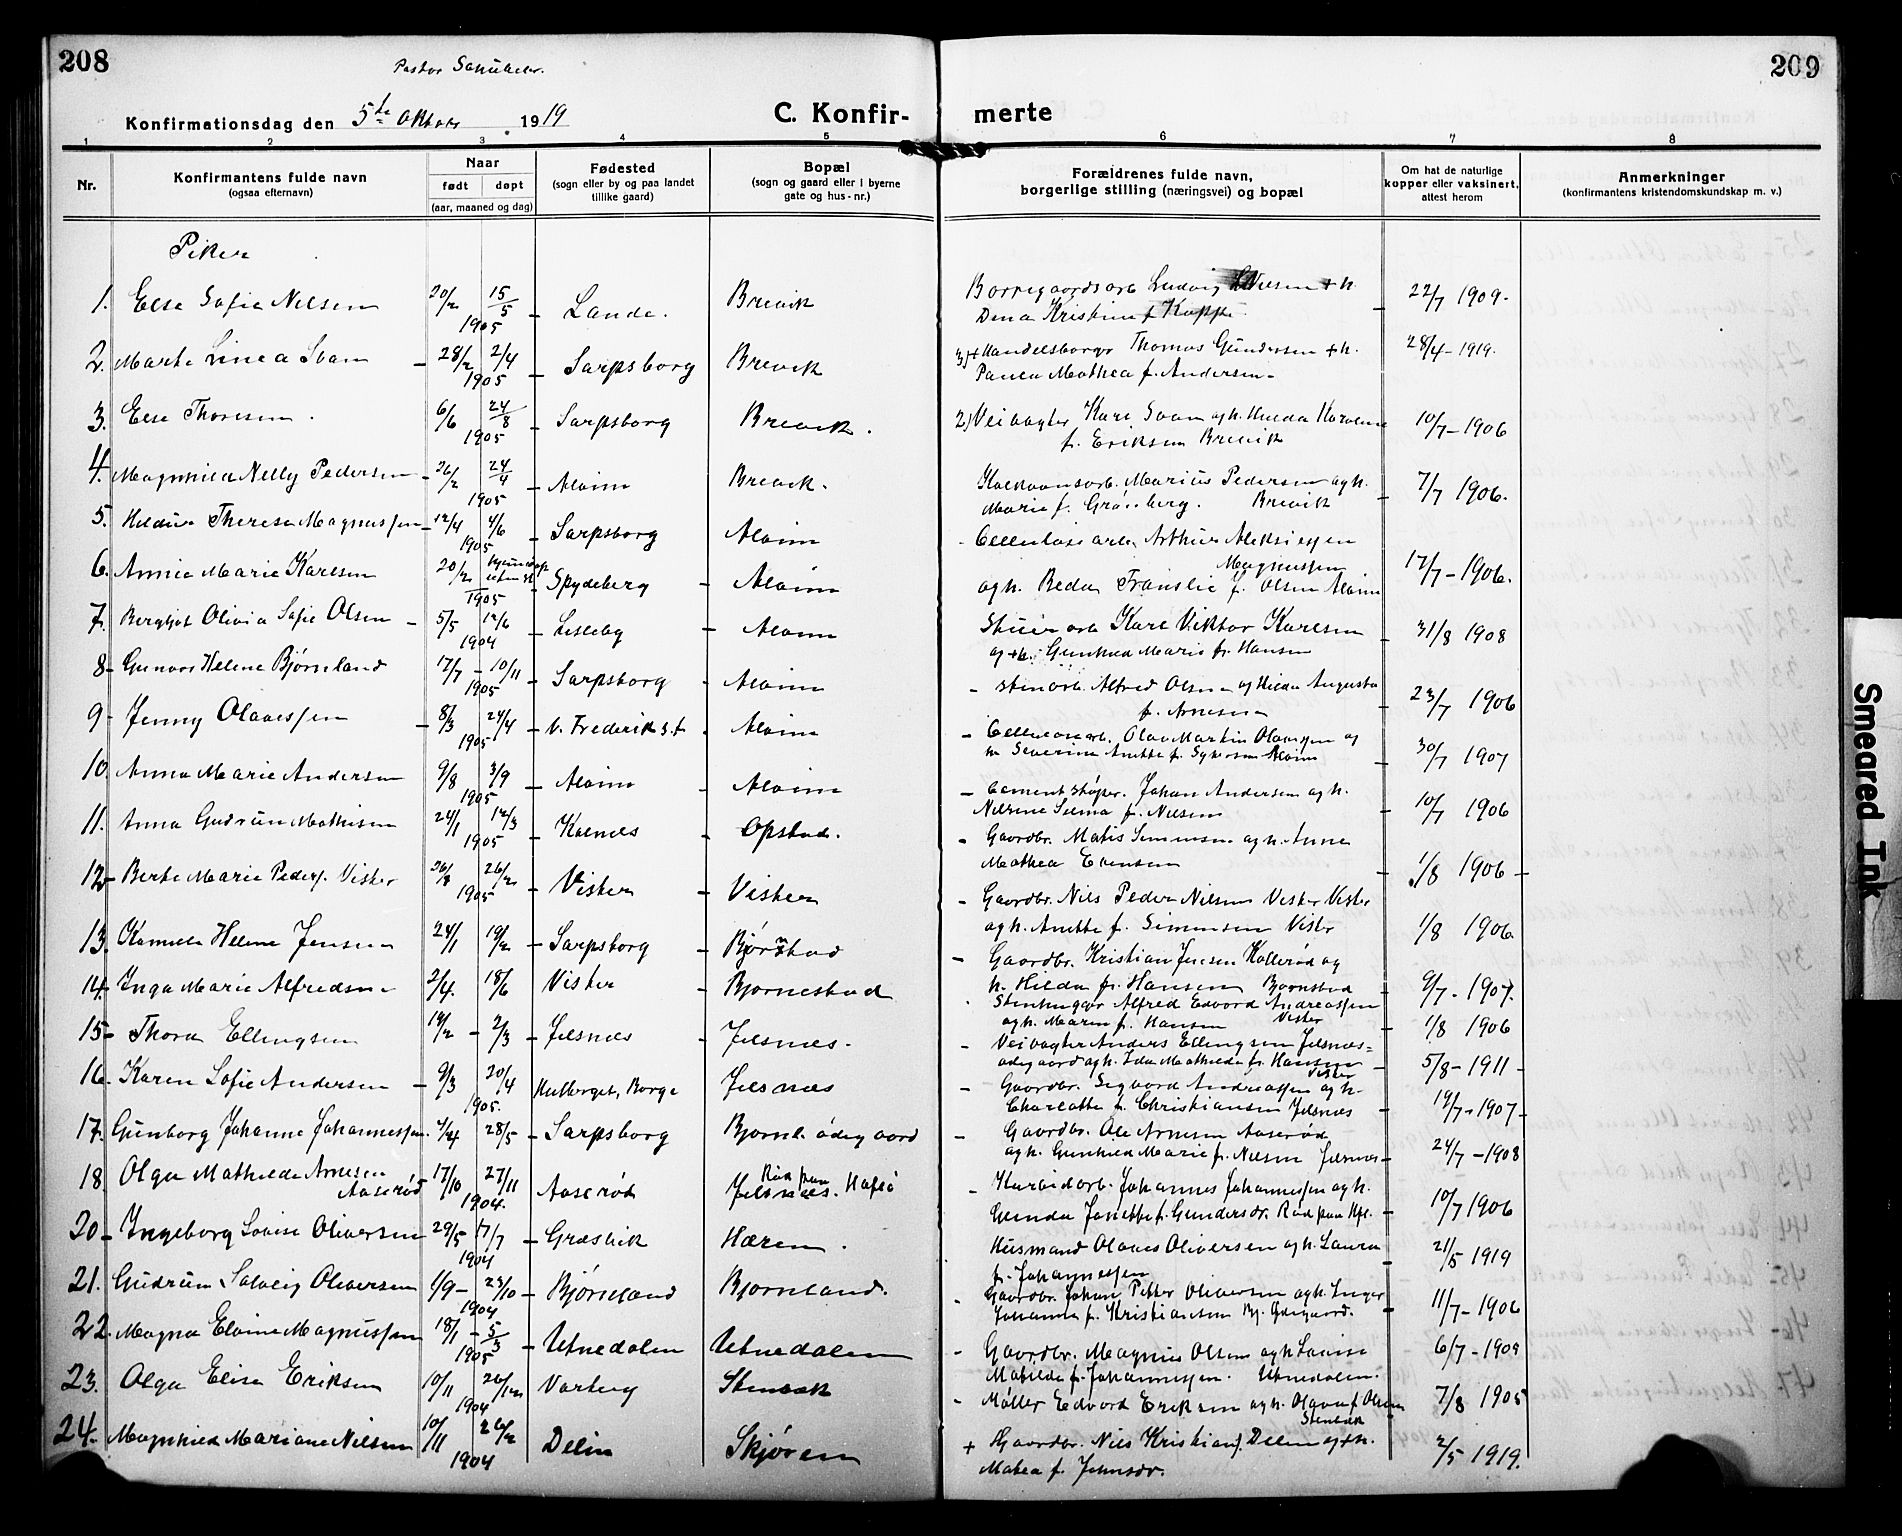 208
209
Pastor Schübeler.
Konfirmationsdag den 5te Oktober 1919
C. Konfir- merte
1 2 3 4 5 6 7 8
Nr.
Konfirmantens fulde navn
(ogsaa efternavn)
Naar
født døpt
(aar, maaned og dag)
Fødested
(sogn eller by og paa landet
tillike gaard)
Bopæl
(sogn og gaard eller i byerne
gate og hus-nr.)
Forældrenes fulde navn,
borgerlige stilling (næringsvei) og bopæl
Om hat de naturlige
kopper eller vaksinert,
attest herom
Anmerkninger
(konfirmantens kristendomskundskap m. v.)
Piker
1. Else Sofie Nilsen 20/2 15/5 1905 - Lande. Brevik
Borregaardsarb. Ludvig Nilsen + h.
Dina Kristine f. Koppe. - 22/7 1909.
2. Marte Linea Svan - 28/2 2/4 1905 - Sarpsborg Brevik
3) + Handelsborgr Thomas Gundersen + h.
Paula Mathea f. Andersen - 28/4 - 1919.
3. Else Thoresen. 6/6 24/8 1905 - Sarpsborg Brevik.
2) Veivogter Karl Svan og h. Hilda Karoline
f. Eriksen Brevik 10/7 - 1906
4. Magnhild Nelly Pedersen - 26/2 24/4 1905 - Alvim Brevik.
Marius Pedersen og h.
Marie f. Grønberg. Brevik - 7/7 1906.
5. Theresa Magnussen - 12/4 4/6 1905 - Sarpsborg Alvim
- Cellulosearb. Arthur
Magnussen
og h. Beda f. Olsen Alvim 17/7 - 1906.
6. Annie Marie Karlsen 20/2 1905 - Spydeberg - Alvim
arb Karl Viktor Karlsen
og h. Gunhild Marie f. Hansen - 31/8 1908
7. Bergljot Olivia Sofie Olsen - 5/5 12/6 1904 - Lisleby - Alvim
- Stenarb. Alfred Olsen og Hilda Augusta
f. Arnesen - 23/7 1906
8 - Gunvor Helene Bjørnland 17/7 - 10/11 1905 - Sarpsborg - Alvim
9 - Jenny Olavessen - 8/3 24/4 1905 - V. Frederikst. Alvim
- Cellulosearb. Olav Martin Olavessen og
h. Severine Anette f. Alvim - 30/7 1907
10. Anna Marie Andersen 9/8 3/9 1905 - Alvim - Alvim
- Cementstøper. Johan Andersen og h.
Nilsine Selma f. Nilsen - 10/7 1906
11. Anna Gudrun Mathisen 24/1 12/3 1905 - Kalnes - Opstad.
- Gaardbr. Matis Simensen og h. Anne
Mathea Evensen 1/8 1906 -
12 - Berte Marie Peders. Vister 26/2 1905 - Vister - Vister
- Gaardbr. Nils Peder Nilsen Vister Vister
og h. Anette f. Simensen Vister 1/8 1906
13. Helene Jensen 24/1 19/2 - Sarpsborg - Bjørnstad
- Gaardbr. Kristian Jensen Kollerød og
h. Hilda f. Hansen Bjørnstad 9/7 - 1907.
14. Inga Marie Alfredsen 2/4. 18/6 Vister - Bjørnestad
Stenhugger Alfred Edvard Andreassen
og h. Maren f. Hansen Vister - 1/8 1906
15 - Thora Ellingsen 14/2 - 2/3 - Jelsnes - Jelsnes.
- Veivogter Anders Ellingsen Jelsnes=
ødegaard og h. Ida Mathilde f. Hansen - 5/8 - 1911 -
16. Karen Sofie Andersen - 9/3 20/4 1905. Hulberget, Borge Jelsnes
Vister
- Gaardbr. Sigvard Andreassen og h.
Charlotte f. Christiansen Jelsnes - 19/7 - 1907 -
17. Gunborg Johanne Johannessen. 4/4 28/5 - Sarpsborg Bjørnl. ødegaard
- Gaardbr. Ole Arnesen Aaserød
og h. Gunhild Marie f. Nilsen Jelsnes - 24/7 - 1908
18. Olga Mathilde Arnesen
Aaserød 17/10 27/11 1904. Aaserød Rød paa
Jelsnes. Hafsl.
- Karbidarb. Johannes Johannessen og h.
Gunda Janette f. Gundersdr. Rød paa Hfl. 10/7 1906
20 - Ingeborg Lovise Oliversen 29/5 17/7 1904 - Græsvik Haren.
Husmand Olaves Oliversen og h. Laura
f. Johannessen 21/5 1919
21. Gudrun Solveig Oliversen 1/9 - 23/10 1904 - Bjørnland Bjørnland.
- Gaardbr. Johan Petter Oliversen og h. Inger
Johanne f. Kristiansen Bj. Ødegaard. - 11/7 - 1906
22. Magna Elvine Magnussen 18/1 - 5/3 1905 - Utnedalen Utnedalen
- Gaardbr. Magnus Olsen og h. Lovise
Matilde f. Johannessen. Utnedalen. 6/7 - 1909
23. Olga Elise Eriksen 10/11 26/12 1904 - Varteig Stenbæk
- Møller Edvard Eriksen og h. Olava f. Olsen
Stenbæk 7/8 1905
24. Magnhild Mariane Nilsen 10/11 26/2 1904 Delin Skjøren
+ Gaardbr. Nils Kristian J. Delin og + h.
Matea f. Johnsdr. 2/5 1919.
Smeared Ink